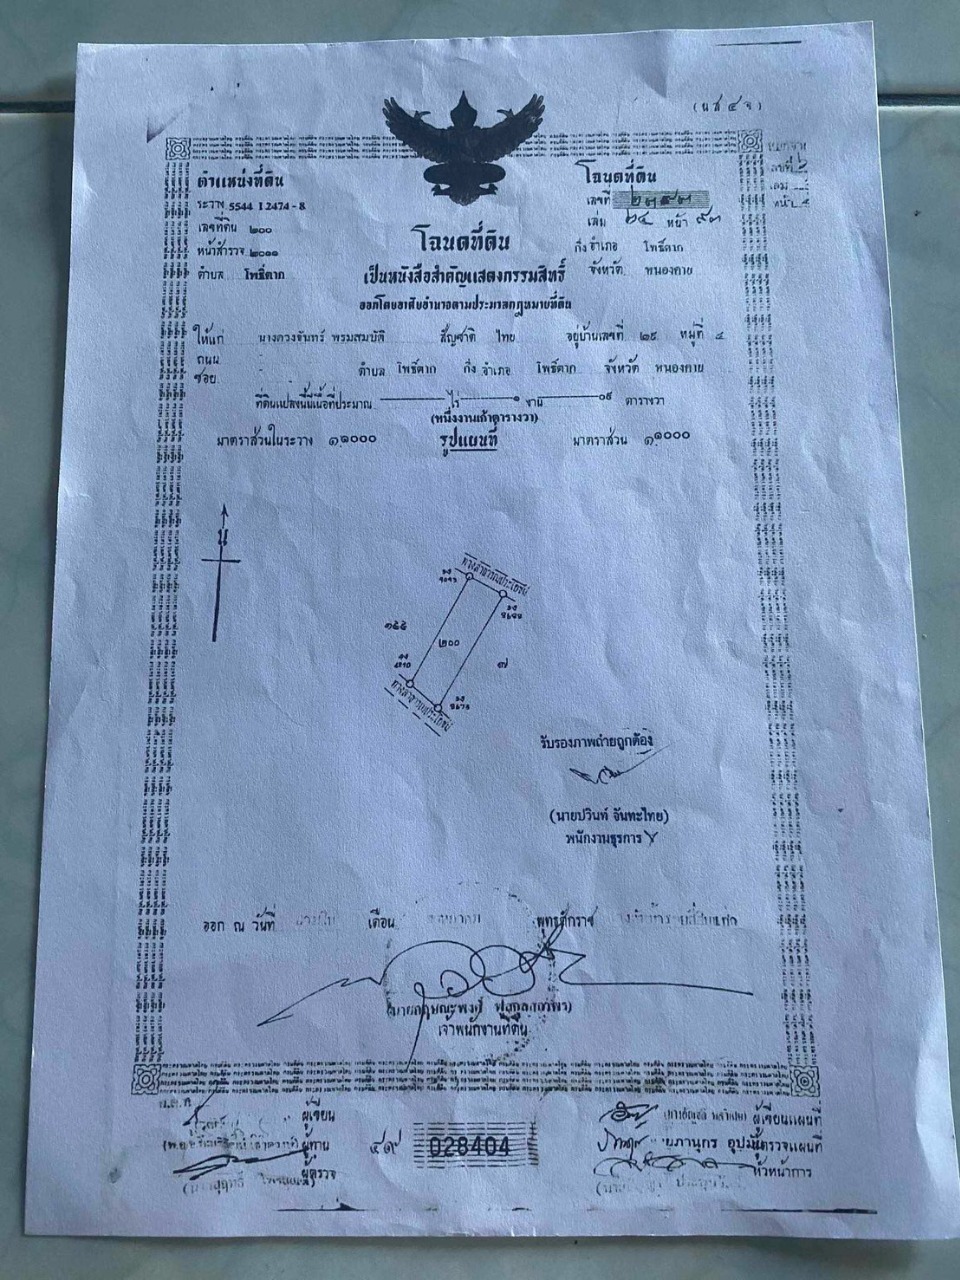 (น ส ๔ จ)
ตำแหน่งที่ดิน
ระวาง 5544 I 2474-8
เลขที่ดิน ๒๐๐
หน้าสำรวจ ๒๐๑๑
ตำบล โพธิ์ตาก
โฉนดที่ดิน
เลขที่ ๒๓๙๓
เล่ม ๒๔ หน้า ๙๓
กิ่งอำเภอ โพธิ์ตาก
จังหวัด หนองคาย
โฉนดที่ดิน
เป็นหนังสือสำคัญแสดงกรรมสิทธิ์
ออกโดยอาศัยอำนาจตามประมวลกฎหมายที่ดิน
ให้แก่ นางดวงจันทร์ พรมสมบัติ สัญชาติ ไทย อยู่บ้านเลขที่ ๒๙ หมู่ที่ ๔
ถนน
ซอย - ตำบล โพธิ์ตาก กิ่งอำเภอ โพธิ์ตาก จังหวัด หนองคาย
ที่ดินแปลงนี้มีเนื้อที่ประมาณ - ไร่ ๑ งาน ๐๙ ตารางวา
(หนึ่งงานเก้าตารางวา)
มาตราส่วนในระวาง ๑:๑๐๐๐ รูปแผนที่ มาตราส่วน ๑:๑๐๐๐
น
ทางสาธารณประโยชน์
๑๕๕
๒๐๐
๗
ทางสาธารณประโยชน์
รับรองภาพถ่ายถูกต้อง
(นายปวินท์ จันทะไทย)
พนักงานธุรการ
ออก ณ วันที่ เดือน พุทธศักราช
เจ้าพนักงานที่ดิน
ผู้เขียน
ผู้ทาน
ผู้ตรวจ
๔๙ 028404
ผู้เขียนแผนที่
ผู้ตรวจแผนที่
หัวหน้าการ